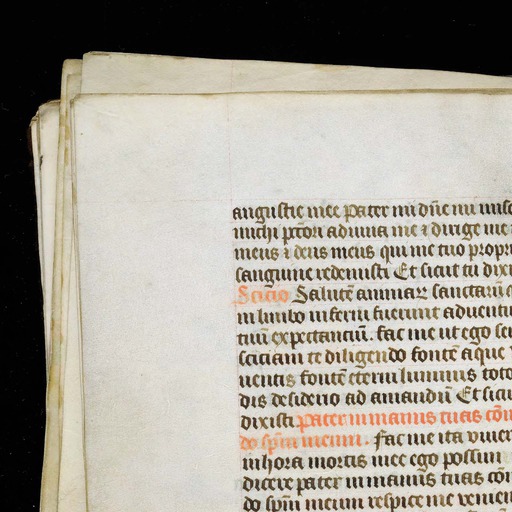 angustie mee Pater mi dn̄e mi mise
michi pctōri adiuua me ⁊ dirige me
meus ⁊ deus meus qui me tuo propri
sanguine redemisti Et sicut tu dixi
Scicio Salutē animaꝝ sanctarū
in limbo inferni fuerunt aduentū
tuū expectanciū. fac me ut ego se
sciciam te diligendo fontē aque
uentis fontē eterni luminis toto
dis desiderio ad amandū Et sicu
dixisti Pater in manus tuas cōm
do spm̄ meum. fac me ita viuer
in hora mortis mee ego possim
dicere pater in manus tuas cōm
do spm̄ meum respice me venien